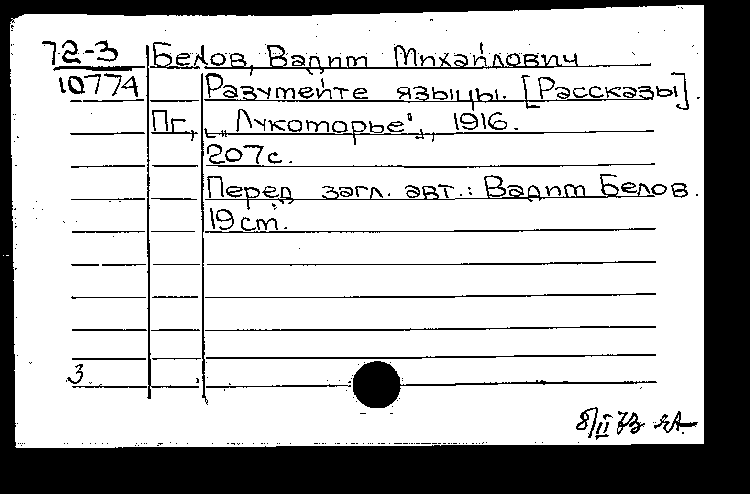 72-3 Белов, Вадим Михайлович
10774 Разумейте языцы. [Рассказы].
Пг., „Лукоморье", 1916.
207 с.
Перед загл. авт.: Вадим Белов.
19 см.
3
8/II 73